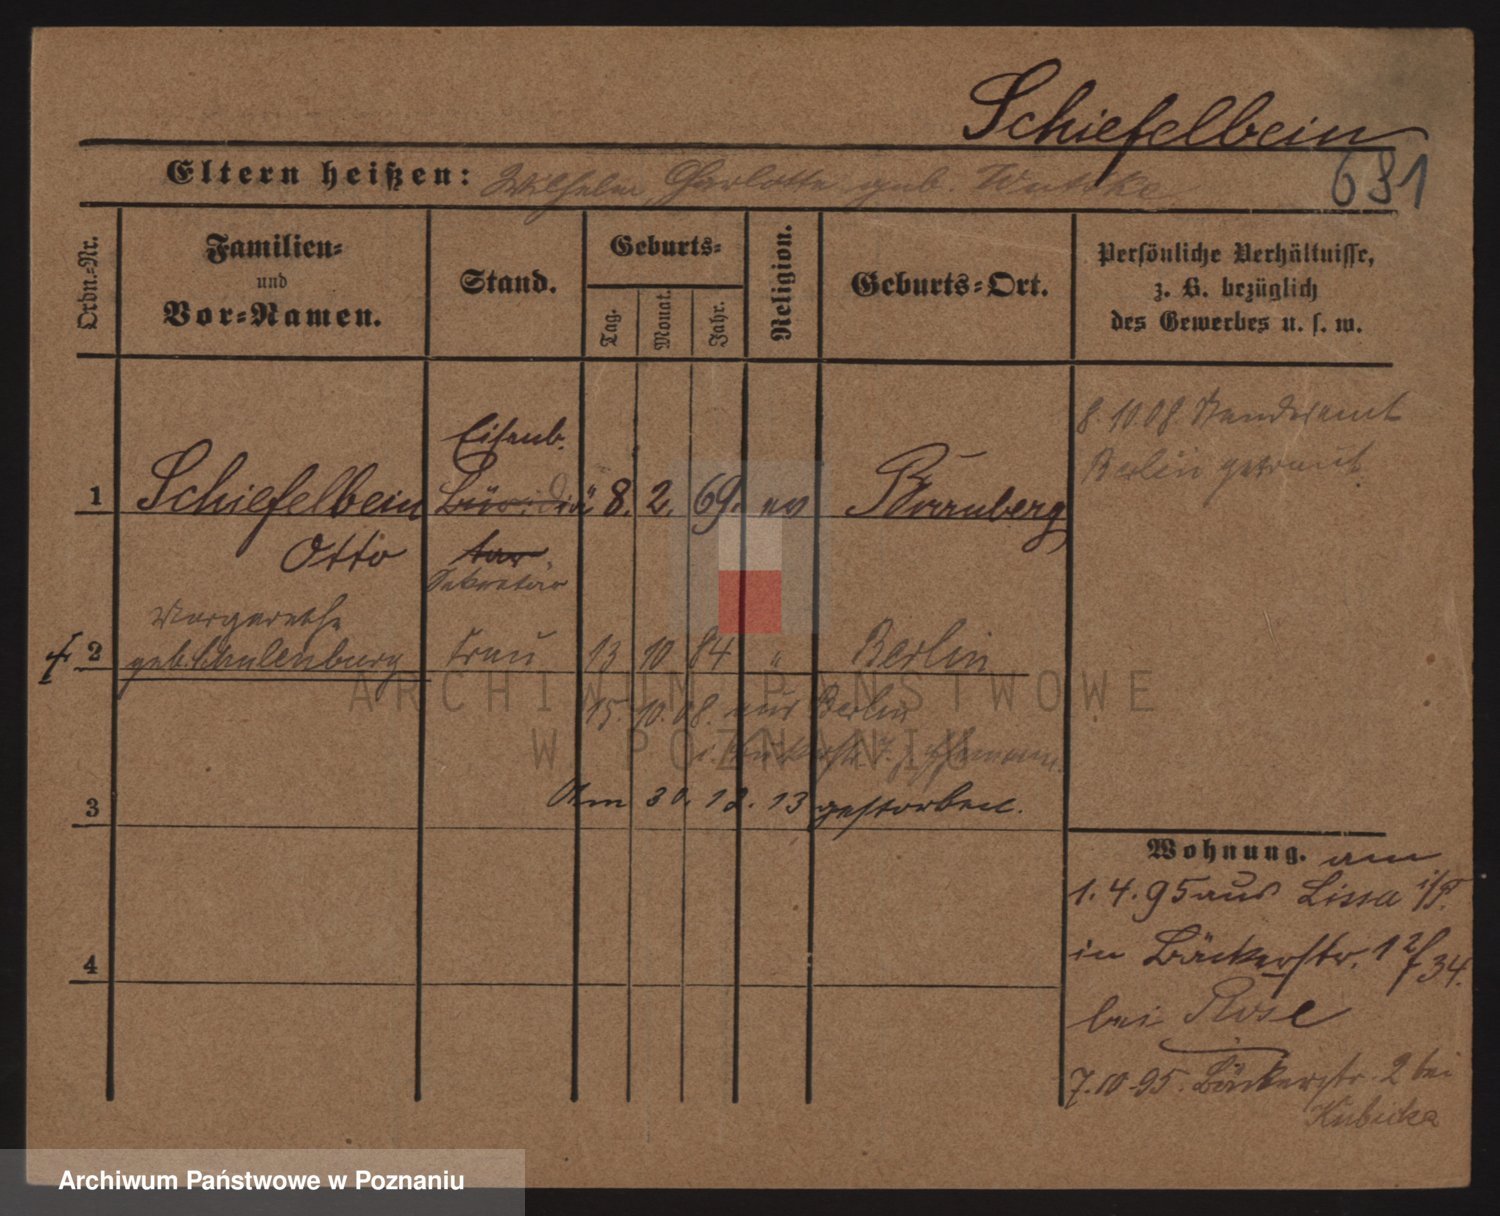 Schiefelbein
Eltern heißen: Wilhelm, Charlotte geb.
681
Ordn.-Nr.
Familien-
und
Vor-Namen.
Stand.
Geburts-
Tag.
Monat.
Jahr.
Religion.
Geburts-Ort.
Persönliche Verhältnisse,
z. B. bezüglich
des Gewerbes u. s. w.
8. 10 08. Standesamt
Berlin getraut
Eisenb.
1 Schiefelbein 8. 2. 69. ev
Otto
tar
Sekretär
Margarethe
2 geb. Schulenburg Frau 13 10 84 " Berlin
15. 10. 08. aus Berlin
3
Am 30. 12. 13 gestorben.
4
Wohnung. am
1. 4. 95 aus Lissa i/P.
in Bäckerstr. 12/34.
bei Rose
7. 10. 95. Bäckerstr. 2 bei
Kubicka
ARCHIWUM PAŃSTWOWE
W POZNANIU
Archiwum Państwowe w Poznaniu